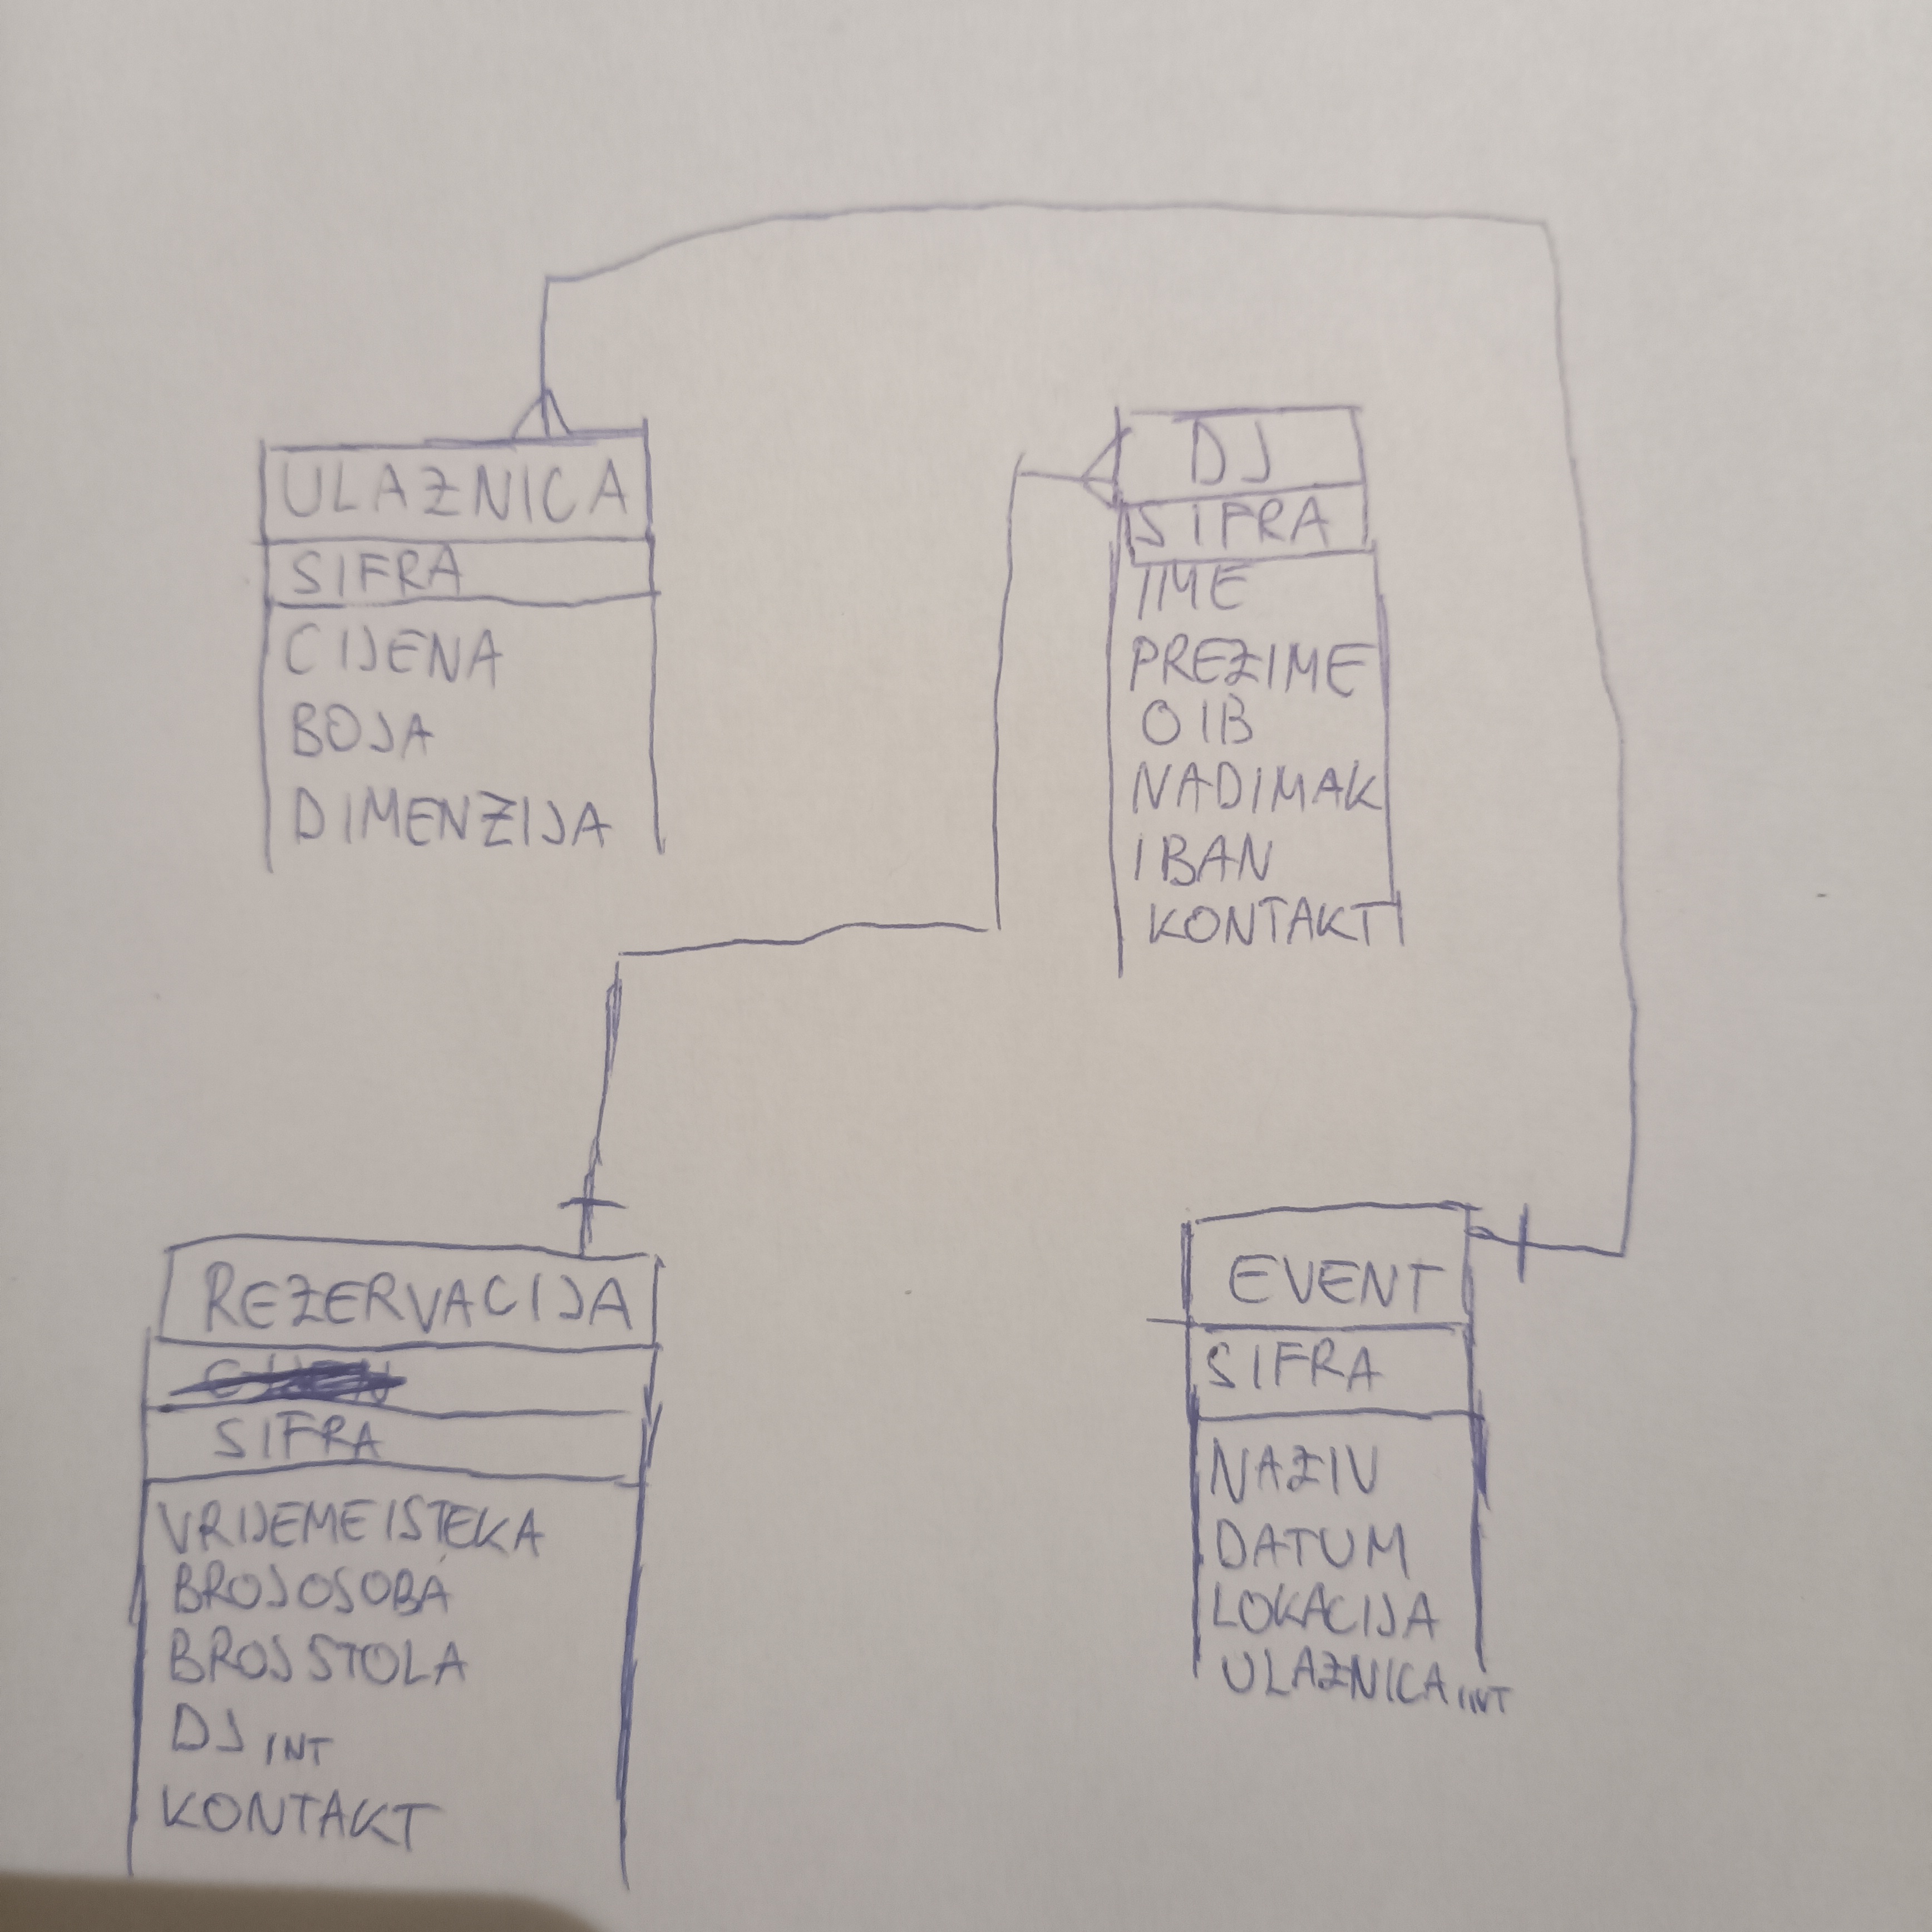 ULAZNICA
SIFRA
CIJENA
BOJA
DIMENZIJA
DJ
SIFRA
IME
PREZIME
OIB
NADIMAK
IBAN
KONTAKT
REZERVACIJA
SIFRA
VRIJEMEISTEKA
BROJOSOBA
BROJSTOLA
DJ INT
KONTAKT
EVENT
SIFRA
NAZIV
DATUM
LOKACIJA
ULAZNICA INT